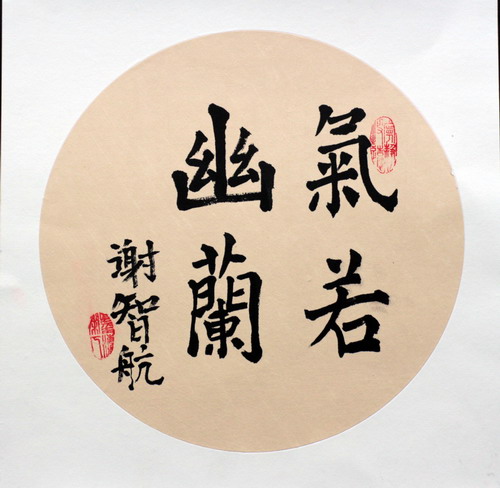 氣若
幽蘭
谢智航